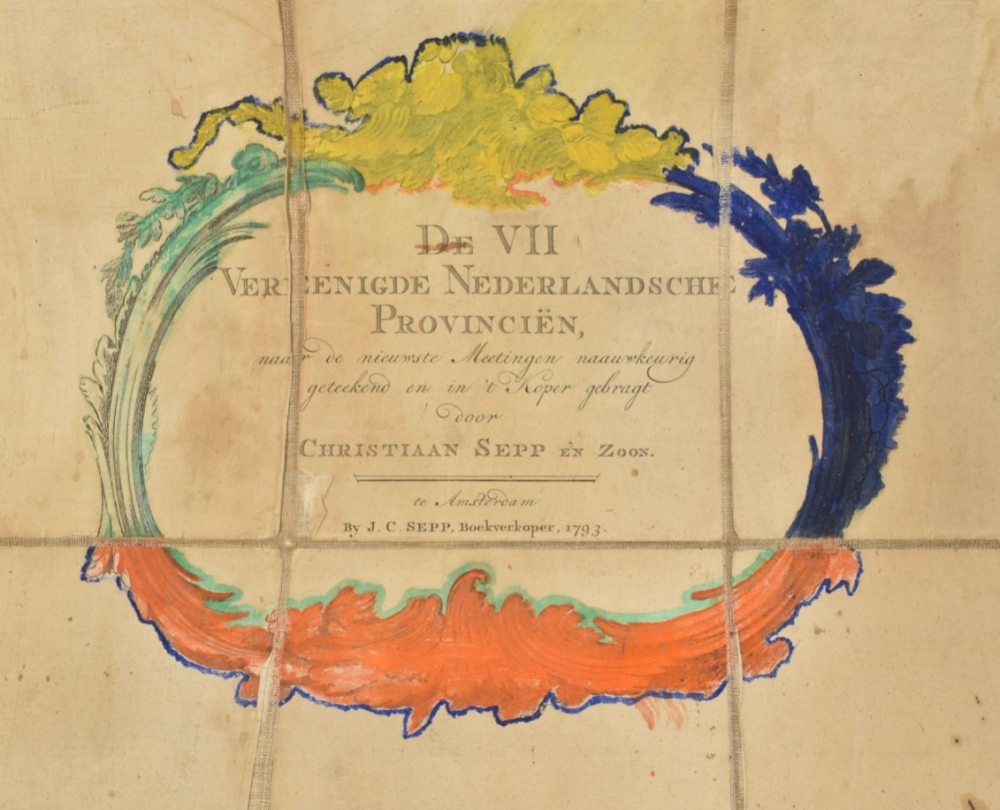 DE VII
VEREENIGDE NEDERLANDSCHE
PROVINCIËN,
naar de nieuwste Meetingen naauwkeurig
geteekend en in 't Koper gebragt
door
CHRISTIAAN SEPP EN ZOON.
te Amsterdam
By J. C. SEPP, Boekverkoper, 1793.